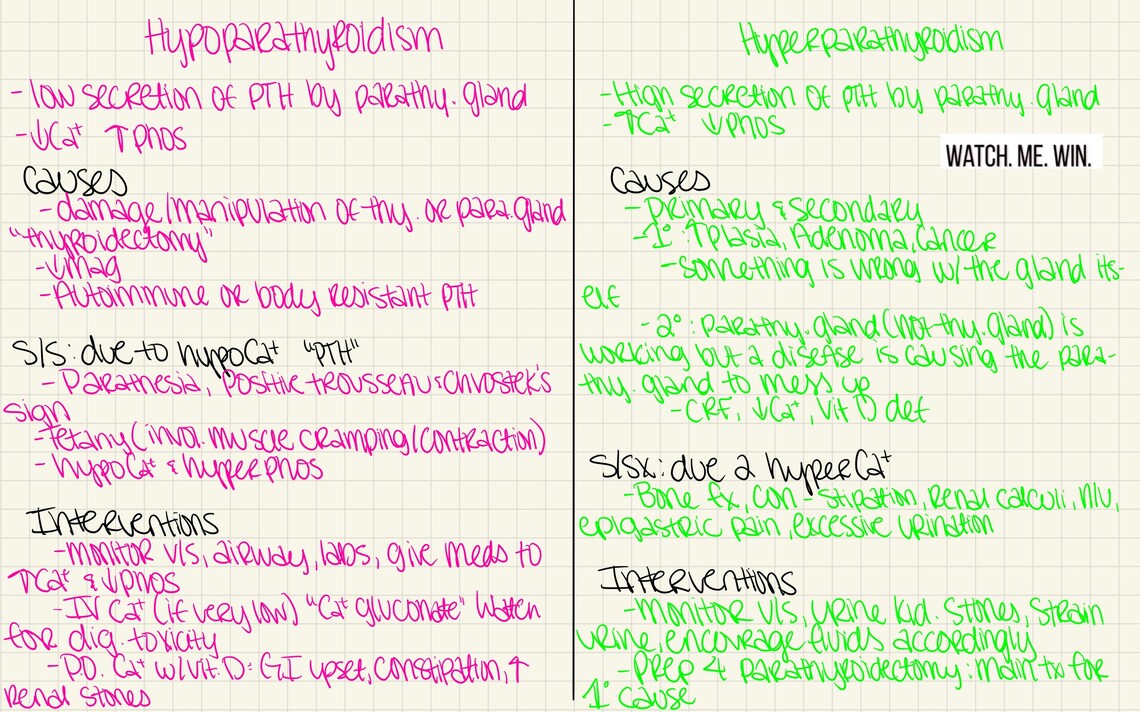 Hypoparathyroidism
- low secretion of PTH by parathy. gland
- ↓Ca⁺ ↑Phos
Causes
- damage/manipulation of thy. or para. gland
"thyroidectomy"
- ↓mag
- Autoimmune or body resistant PTH
S/S: due to hypoCa⁺ "PTH"
- Parathesia, positive trousseau & chvostek's
sign
- Tetany (invol. muscle cramping/contraction)
- hypoCa⁺ & hyperphos
Interventions
- monitor v/s, airway, labs, give meds to
↑Ca⁺ & ↓phos
- IV Ca⁺ (if very low) "Ca⁺ gluconate" Watch
for dig. toxicity
- P.O. Ca⁺ w/vit. D: GI upset, constipation, ↑
renal stones
Hyperparathyroidism
- High secretion of PTH by parathy. gland
- ↑Ca⁺ ↓phos
WATCH. ME. WIN.
Causes
- Primary & Secondary
- 1°: ↑plasia, Adenoma, Cancer
- something is wrong w/ the gland its-
elf
- 2°: parathy. gland (not thy. gland) is
working but a disease is causing the para-
thy. gland to mess up
- CRF, ↓Ca⁺, Vit D def
S/Sx: due 2 hyperCa⁺
- Bone fx, con - stipation, Renal calculi, n/v,
epigastric pain, excessive urination
Interventions
- monitor v/s, urine kid. stones, strain
urine, encourage fluids accordingly
- Prep 4 parathyroidectomy: main tx for
1° cause